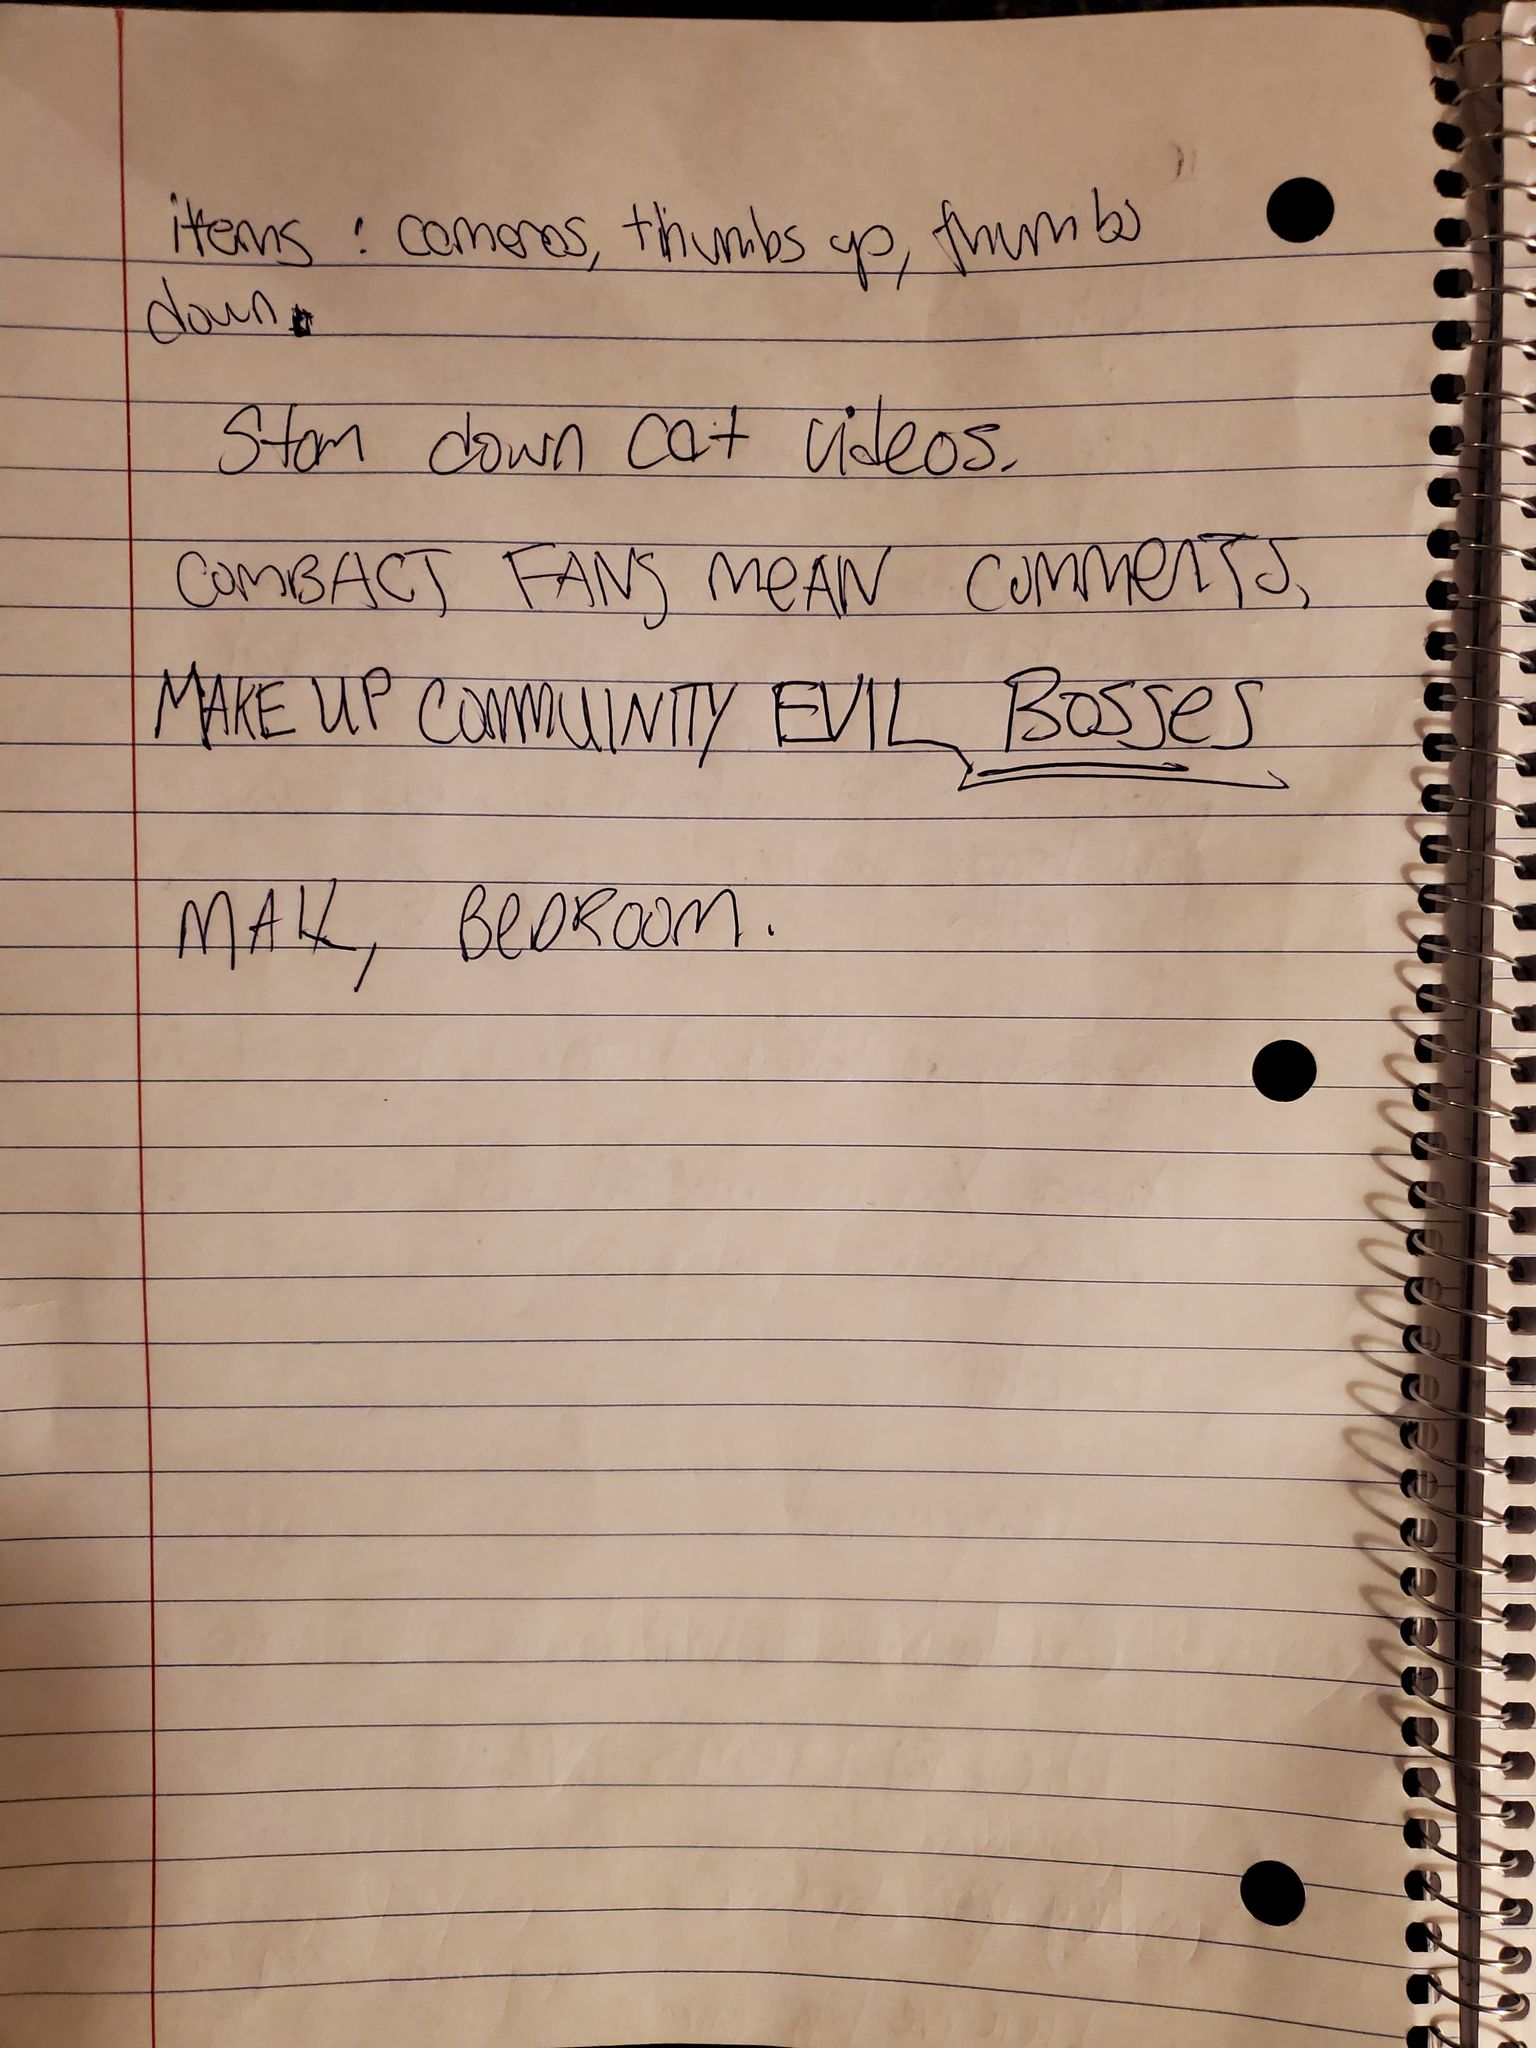 items : cameras, thumbs up, thumbs
down.
Stom down cat videos.
COMBACT FANS MEAN COMMENTS,
MAKE UP COMMUINITY EVIL Bosses
MALL, BEDROOM.